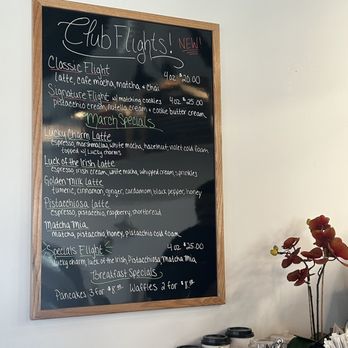 Club Flights! NEW!
Classic Flight 4oz $20.00
latte, cafe mocha, matcha, + chai
Signature Flight w/ matching cookies 4oz $25.00
pistachio cream, nutella cream + cookie butter cream
March Specials
Lucky Charm Latte
espresso, marshmallow, white mocha, hazelnut, violet cold foam
topped w/ Lucky charms
Luck of the Irish Latte
espresso, irish cream, white mocha, whipped cream, sprinkles
Golden Milk Latte
tumeric, cinnamon, ginger, cardamom, black pepper, honey
Pistacchiosa Latte
espresso, pistacchio, raspberry, shortbread
Matcha Mia
matcha, pistacchio, honey, pistacchio cold foam
Specials Flight 4oz $25.00
lucky charm, luck of the Irish, Pistacchiosa, Matcha Mia
Breakfast Specials
Pancakes 3 for $8 Waffles 2 for $8